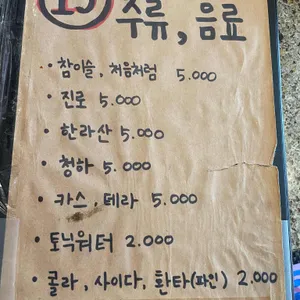 주류, 음료
·· 참이슬, 처음처럼 5.000
· 진로 5.000
· 한라산 5.000
· 청하 5.000
· 카스, 테라 5.000
· 토닉워터 2.000
· 콜라, 사이다, 환타(파인) 2.000